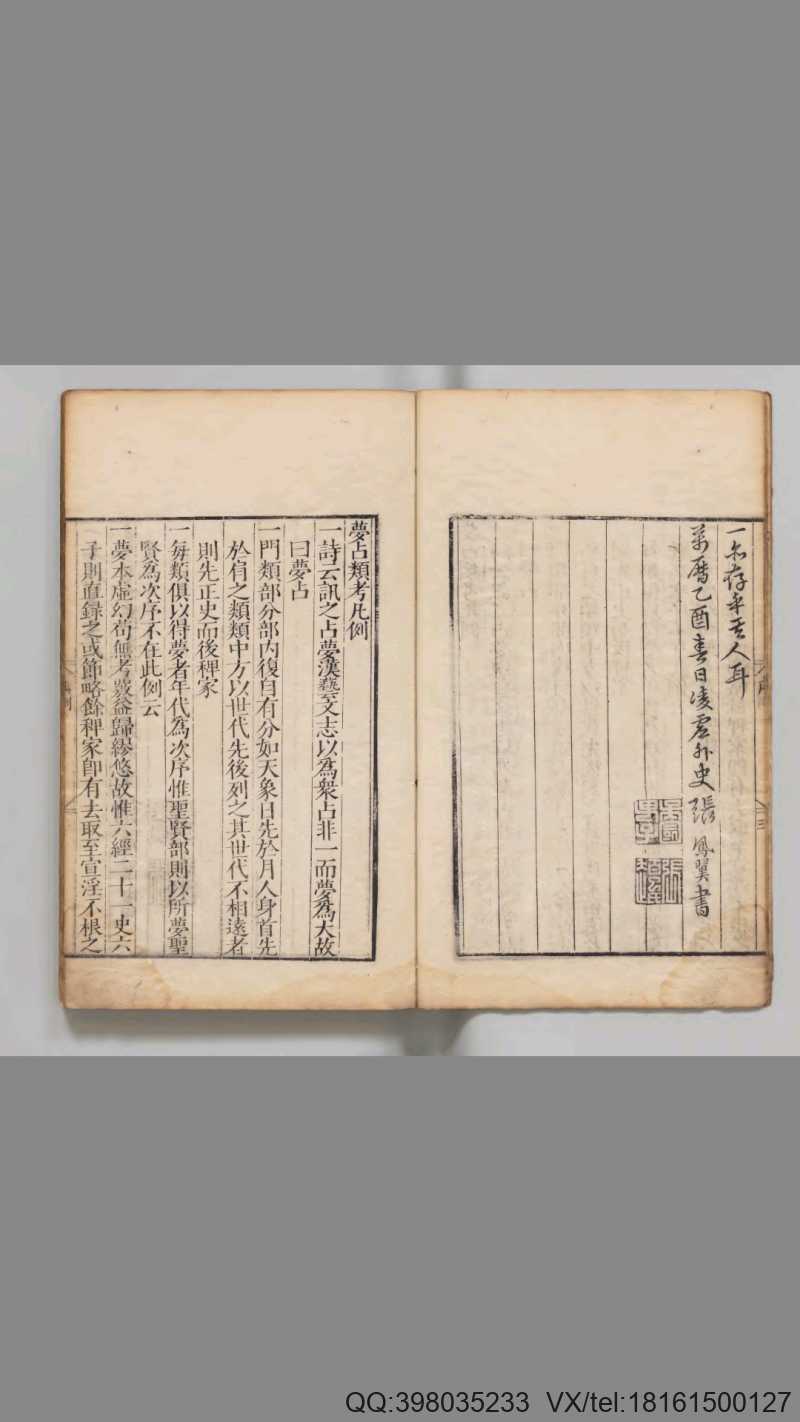 一亦存乎其人耳
萬曆乙酉春日凌虛外史張鳳翼書
夢占類考凡例
一詩云訊之占夢漢藝文志以為衆占非一而夢為大故
曰夢占
一門類部分部内復自有分如天象日先於月人身首先
於肩之類類中方以世代先後列之其世代不相遠者
則先正史而後稗家
一每類俱以得夢者年代為次序惟聖賢部則以所夢聖
賢為次序不在此例云
一夢本虛幻苟無考㨿益歸繆悠故惟六經二十一史六
子則直録之或節略餘稗家即有去取至宣淫不根之
QQ:398035233 VX/tel:18161500127